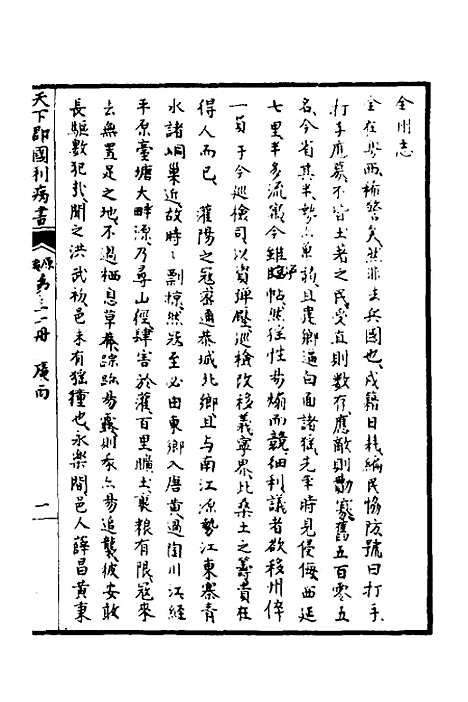 全州志
全在粤西稀警矣然非去兵國也戍籍日耗編民協防號曰打手
打手應募不皆土著之民受直則數存應敵則勛寡舊五百零五
名今省其半勢亦單弱且建鄉逼白面諸猺先年時見侵侮西延
七里半多流寓今雖臨帖然猺性易煽而競細利議者欲移州倅
一員于今巡檢司以資彈壓巡檢改移義寧界比桑土之籌貴在
得人而已 灌陽之寇零通恭城北鄉且与南江源勢江東寨青
水諸峒巢近故時時剽掠然寇至必由東鄉入唐黄過陶川淇經
平原臺塘大畔源乃尋山徑肆害於灌百里曠土裹粮有限寇來
去無置足之地不過栖息草莽踪跡易露則勦亦易追襲彼安敢
長驅數犯哉聞之洪武初邑未有猺獞也永樂間邑人薛昌黄東
天下郡國利病書 原
第三十一册 廣西 一